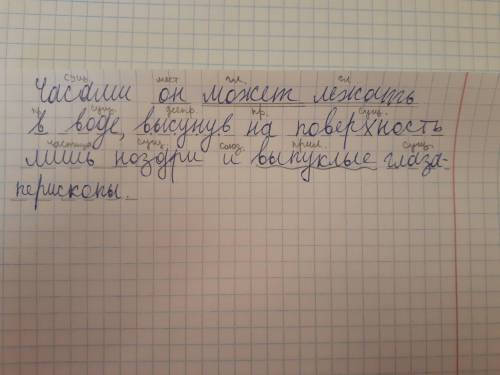 сущ. мест. гл. гл
Часами он может лежать
пр. сущ. деепр. пр. сущ.
в воде, высунув на поверхность
частица сущ. союз. прил. сущ.
лишь ноздри и выпуклые глаза-
перископы.